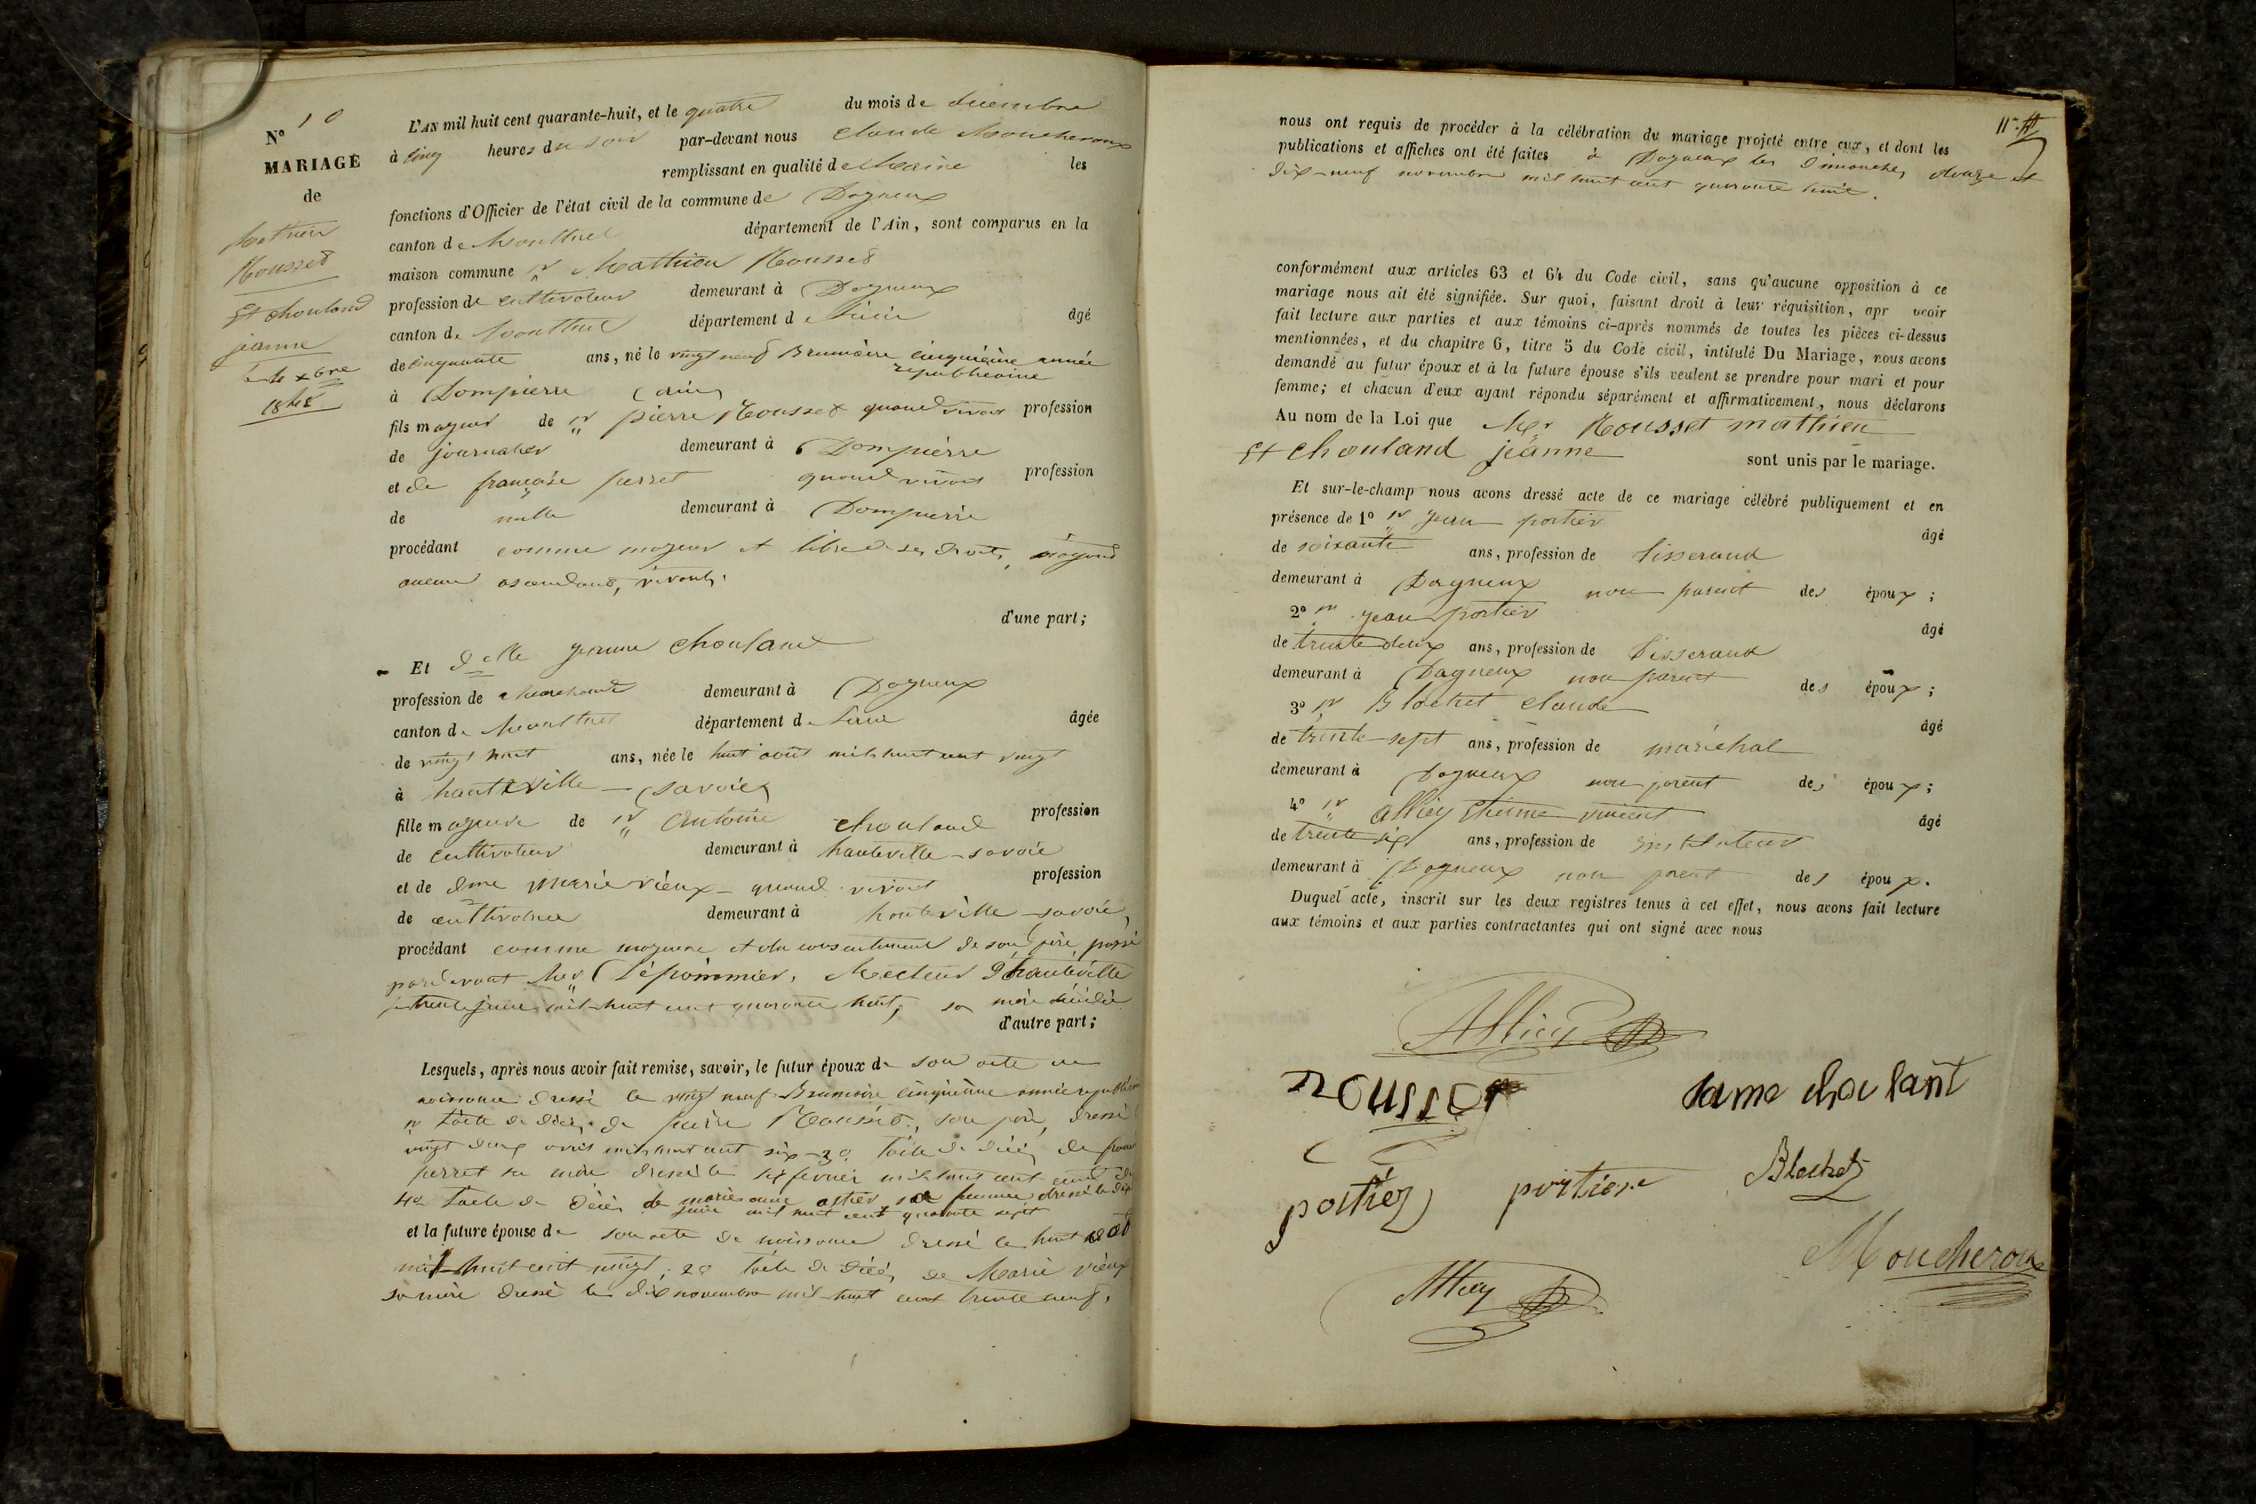 N° 10
MARIAGE
de
Mathieu
Rousset
Et Chouland
jeanne
Le 4 Xbre
1848
L'AN mil huit cent quarante-huit, et le quatre du mois de decembre
à cinq heures du soir par-devant nous Claude Moucheroux
remplissant en qualité de Maire les
fonctions d'Officier de l'état civil de la commune de Dagneux
canton de Montluel département de l'Ain, sont comparus en la
maison commune Sr Mathieu Rousset
profession de cultivateur demeurant à Dagneux
canton de Montluel département d âgé
de cinquante ans, né le vingt neuf Brumaire cinquième année
republicaine
à Dompierre (ain)
fils majeur de Sr pierre Rousset quand vivait profession
de journalier demeurant à Dompierre
et de françoise perret quand vivait profession
de nulle demeurant à Dompierre
procédant comme majeur et libre de ses droits, n'ayant
aucun ascendans, vivants.
d'une part;
Et delle jeanne Chouland
profession de Marchande demeurant à Dagneux
canton de Montluel département de l'ain âgée
de vingt huit ans, née le huit août mil huit cent vingt
à hauteville (savoie)
fille majeure de Sr Antoine Chouland profession
de cultivateur demeurant à hauteville - savoie
et de dme Marie vieux - quand vivait profession
de cultivatrice demeurant à hauteville - savoie,
procédant comme majeure et du consentement de son père, passé
pardevant Mr Dépommier, Recteur d'hauteville
trente juin mil huit cent quarante huit, sa mère décédée
d'autre part;
Lesquels, après nous avoir fait remise, savoir, le futur époux de son acte de
naissance dressé le vingt neuf Brumaire cinquième année
l'acte de décès de pierre Rousset, son père, dressé
vingt deux mil huit cent six - 3° l'acte de décès de
perret sa mère dressé le six fevrier mil huit cent
4° l'acte de décès de marie anne astier sa femme dressé le dix
juin mil huit cent quarante sept
et la future épouse de son acte de naissance dressé le huit août
mil huit cent vingt, 2° l'acte de décès de Marie vieux
sa mère dressé le dix novembre mil huit cent trente neuf.
11
nous ont requis de procéder à la célébration du mariage projeté entre eux, et dont les
publications et affiches ont été faites à Dagneux les dimanches, douze et
dix-neuf novembre mil huit cent quarante huit.
conformément aux articles 63 et 64 du Code civil, sans qu'aucune opposition à ce
mariage nous ait été signifiée. Sur quoi, faisant droit à leur réquisition, apr avoir
fait lecture aux parties et aux témoins ci-après nommés de toutes les pièces ci-dessus
mentionnées, et du chapitre 6, titre 5 du Code civil, intitulé Du Mariage, nous avons
demandé au futur époux et à la future épouse s'ils veulent se prendre pour mari et pour
femme; et chacun d'eux ayant répondu séparément et affirmativement, nous déclarons
Au nom de la Loi que Mr Rousset mathieu
Et Chouland jeanne sont unis par le mariage.
Et sur-le-champ nous avons dressé acte de ce mariage célébré publiquement et en
présence de 1° Sr Jean portier âgé
de soixante ans, profession de tisserand
demeurant à Dagneux non parent des époux;
2° Sr jean portier âgé
de trente deux ans, profession de tisserand
demeurant à Dagneux non parent des époux;
3° Sr Blochet claude âgé
de trente-sept ans, profession de maréchal
demeurant à Dagneux non parent des époux;
4° Sr Alliey Etienne vincent âgé
de trente six ans, profession de instituteur
demeurant à Dagneux non parent des époux.
Duquel acte, inscrit sur les deux registres tenus à cet effet, nous avons fait lecture
aux témoins et aux parties contractantes qui ont signé avec nous
Alliey
ROUSSET Janne choulant
portier portiere Blochet
Alliey Moucheroux